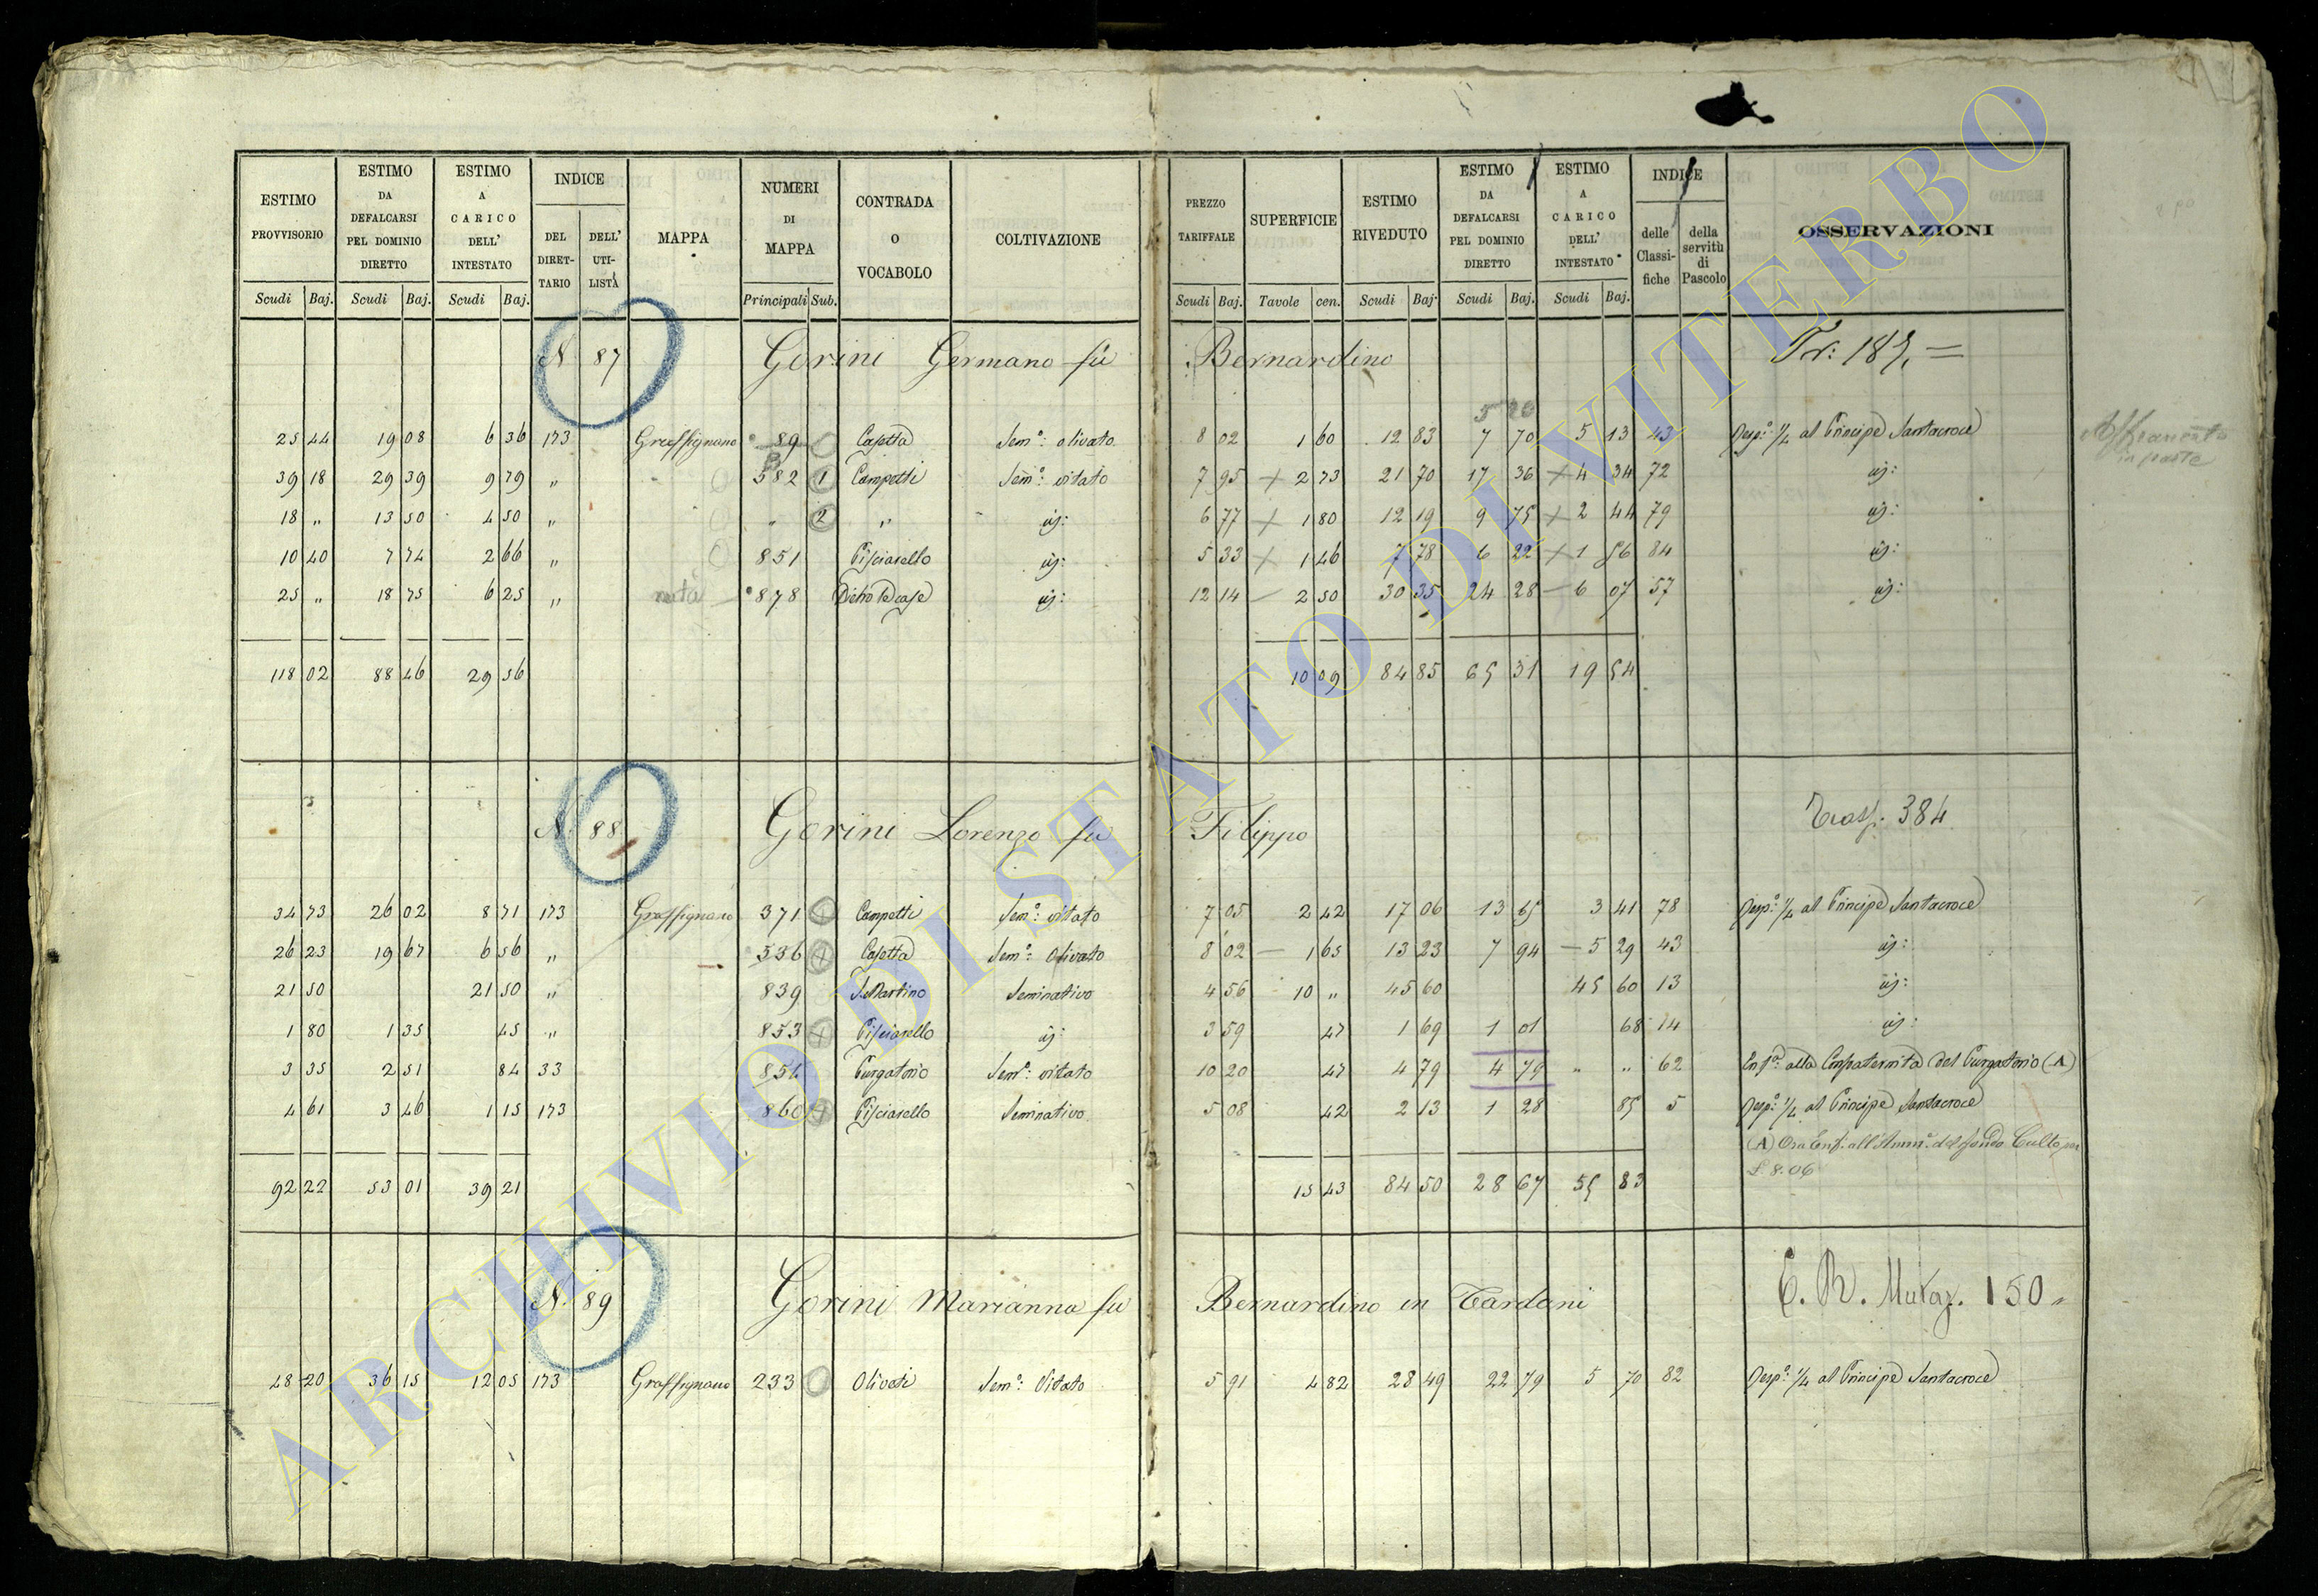 ESTIMO PROVVISORIO | ESTIMO DA DEFALCARSI PEL DOMINIO DIRETTO | ESTIMO A CARICO DELL' INTESTATO | INDICE | MAPPA | NUMERI DI MAPPA | CONTRADA O VOCABOLO | COLTIVAZIONE | PREZZO TARIFFALE | SUPERFICIE | ESTIMO RIVEDUTO | ESTIMO DA DEFALCARSI PEL DOMINIO DIRETTO | ESTIMO A CARICO DELL' INTESTATO | INDICE | OSSERVAZIONI
DEL DIRET-TARIO | DELL' UTI-LISTA | delle Classi-fiche | della servitù di Pascolo
Scudi Baj. | Scudi Baj. | Scudi Baj. | Principali Sub. | Scudi Baj. | Tavole cen. | Scudi Baj. | Scudi Baj. | Scudi Baj.
N. 87 Gorini Germano fu Bernardino
25 44 | 19 08 | 6 36 | 173 | Graffignano | 89 | Casetta | Sem.º: olivato | 8 02 | 1 60 | 12 83 | 7 70 | 5 13 | 43 | Resp.º ¼ al Principe Santacroce
in parte
39 18 | 29 39 | 9 79 | " | 582 1 | Campetti | Sem.º: vitato | 7 95 | 2 73 | 21 70 | 17 36 | 4 34 | 72 | id:
18 " | 13 50 | 4 50 | " | " 2 | " | id: | 6 77 | 1 80 | 12 19 | 9 75 | 2 44 | 79 | id:
10 40 | 7 74 | 2 66 | " | 851 | Pisciarello | id: | 5 33 | 1 46 | 7 78 | 6 22 | 1 56 | 84 | id:
25 " | 18 75 | 6 25 | " | 878 | Dietro le case | id: | 12 14 | 2 50 | 30 35 | 24 28 | 6 07 | 57 | id:
118 02 | 88 46 | 29 56 | 10 09 | 84 85 | 65 31 | 19 54
N. 88 Gorini Lorenzo fu Filippo
Trasf. 384
34 73 | 26 02 | 8 71 | 173 | Graffignano | 371 | Campetti | Sem.º: vitato | 7 05 | 2 42 | 17 06 | 13 65 | 3 41 | 78 | Resp.º ¼ al Principe Santacroce
26 23 | 19 67 | 6 56 | " | 536 | Casetta | Sem.º: Olivato | 8 02 | 1 65 | 13 23 | 7 94 | 5 29 | 43 | id:
21 50 | 21 50 | " | 839 | S. Martino | Seminativo | 4 56 | 10 " | 45 60 | 45 60 | 13 | id:
1 80 | 1 35 | 45 | " | 853 | Pisciarello | id: | 3 59 | 47 | 1 69 | 1 01 | 68 | 14 | id:
3 35 | 2 51 | 84 | 33 | 854 | Purgatorio | Sem.º: vitato | 10 20 | 47 | 4 79 | 4 79 | " " | 62 | Enf.ª alla Confraternita del Purgatorio (A)
4 61 | 3 46 | 1 15 | 173 | 860 | Pisciarello | Seminativo | 5 08 | 42 | 2 13 | 1 28 | 85 | 5 | Resp.º ¼ al Principe Santacroce
(A) Ora Enf. all'Amm.e del fondo Culto per
£ 8.06
92 22 | 53 01 | 39 21 | 15 43 | 84 50 | 28 67 | 55 83
N. 89 Gorini Marianna fu Bernardino in Tardani
150
48 20 | 36 15 | 12 05 | 173 | Graffignano | 233 | Oliveti | Sem.º: Vitato | 5 91 | 4 82 | 28 49 | 22 79 | 5 70 | 82 | Resp.º ¼ al Principe Santacroce
ARCHIVIO DI STATO DI VITERBO